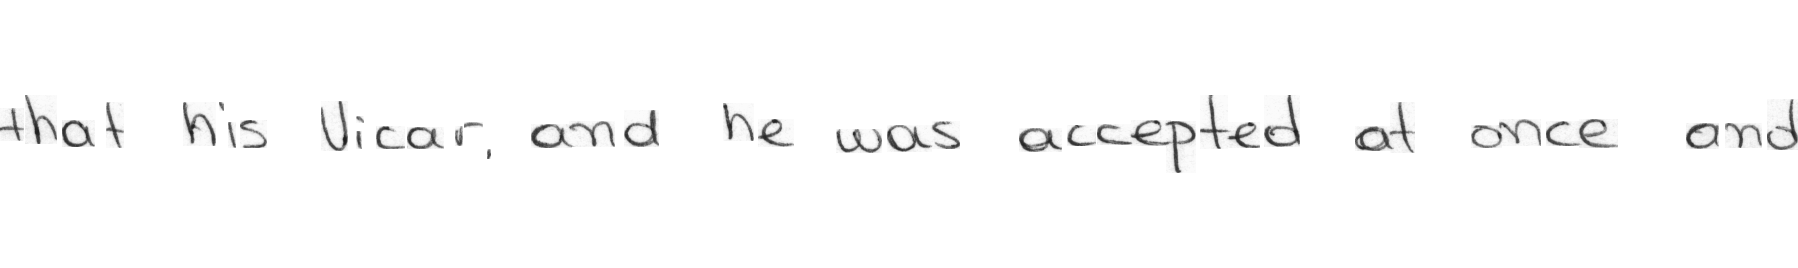 that his Vicar, and he was accepted at once and